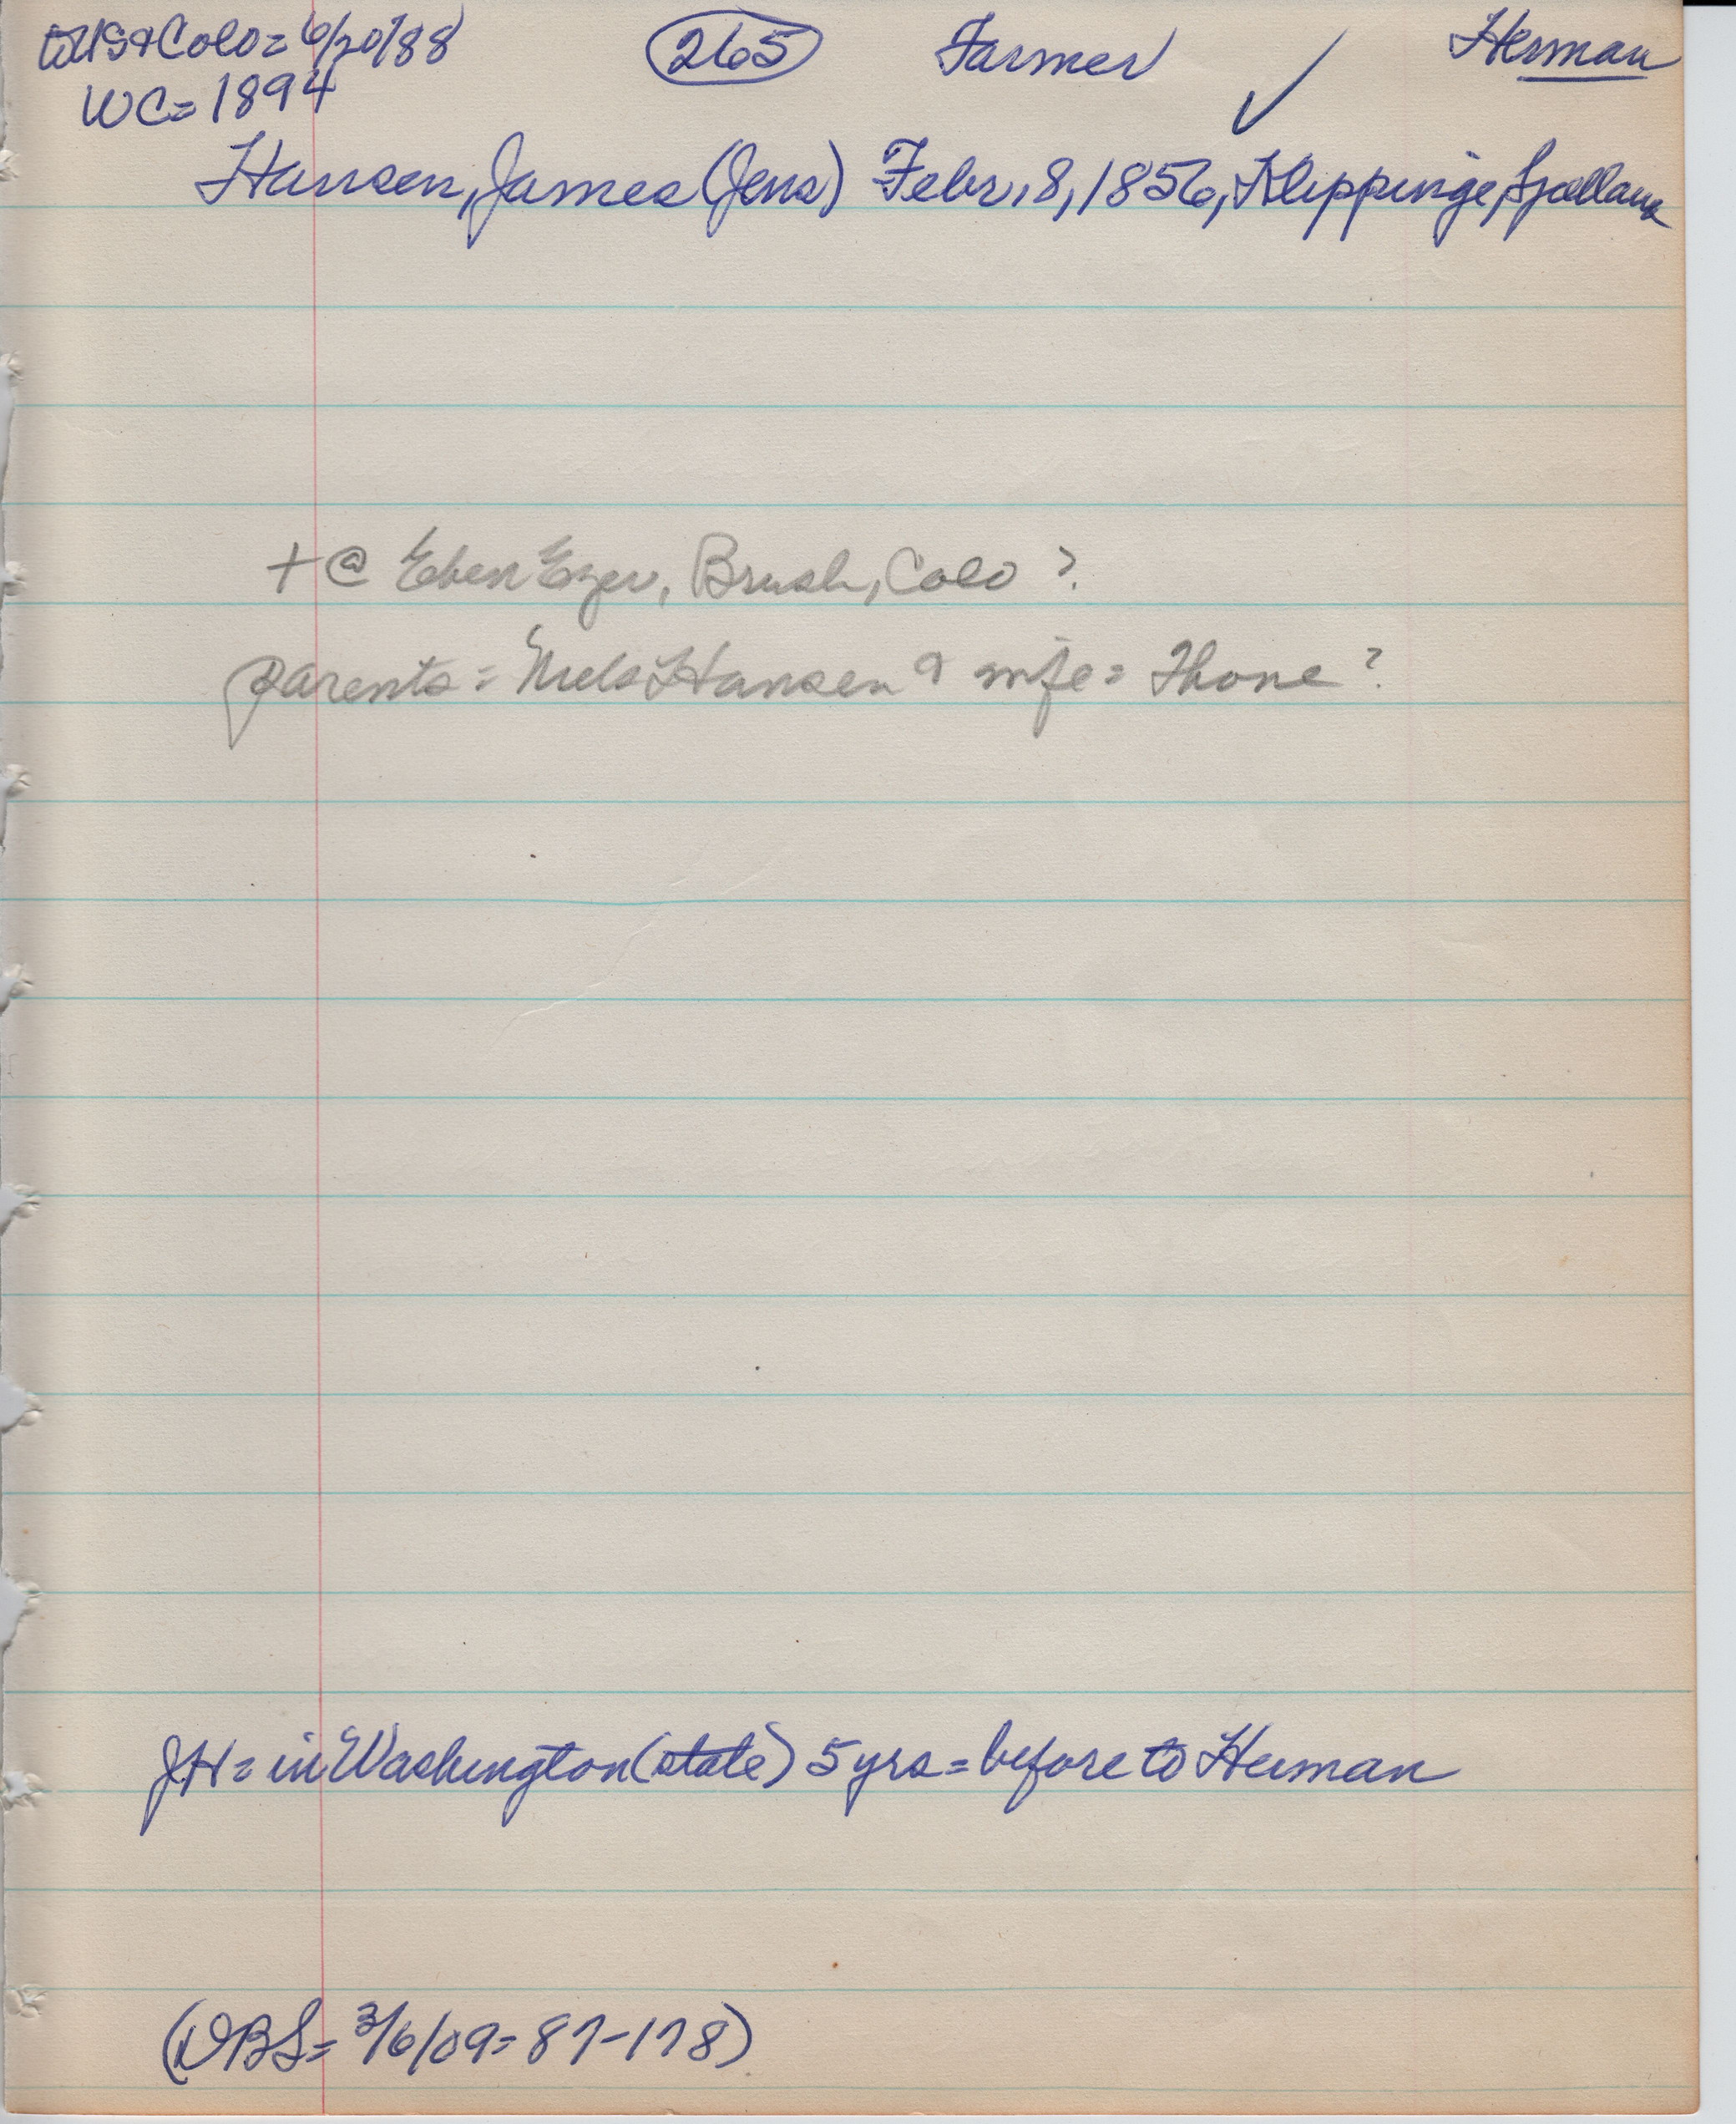 to US & Colo = 6/20/88 (265) Farmer ✓ Herman
WC = 1894
Hansen, James (Jens) Febr, 8, 1856, Klippinge, Sjælland
+ @ Eben Ezer, Brush, Colo ?
parents = Niels Hansen & wife = Thone ?
JH = in Washington (state) 5 yrs = before to Herman
(DBS = 3/6/09 = 87-178)